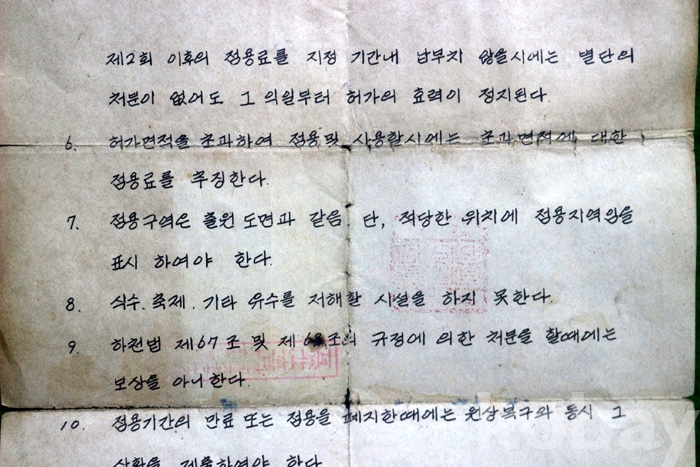 제2회 이후의 점용료를 지정 기간내 납부치 않을시에는 별단의
처분이 없어도 그 의월부터 허가의 효력이 정지된다.
6. 허가면적을 초과하여 점용및 사용할시에는 초과면적에 대한
점용료를 추징한다.
7. 점용구역은 출원도면과 같음. 단, 적당한 위치에 점용지역임을
표시 하여야 한다.
8. 식수.축제.기타 유수를 저해할 시설을 하지 못한다.
9. 하천법 제67조 및 제68조의 규정에 의한 처분을 할때에는
보상을 아니한다.
10. 점용기간의 만료 또는 점용을 폐지한때에는 원상복구와 동시 그
상황을 제출하여야 한다.